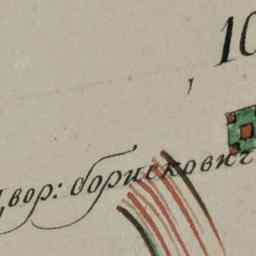 10
двор: борискович